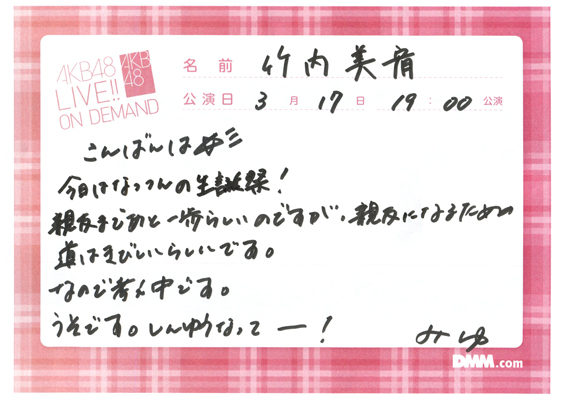 AKB48
LIVE!!
ON DEMAND
AKB
48
名前 竹内美宥
公演日 3月17日 19:00公演
こんばんは
今日はなっつんの生誕祭!
親友まであと一歩らしいのですが、親友になるための
道はきびしいらしいです。
なので考え中です。
うそです。しんゆうなってー!
みゆ
DMM.com